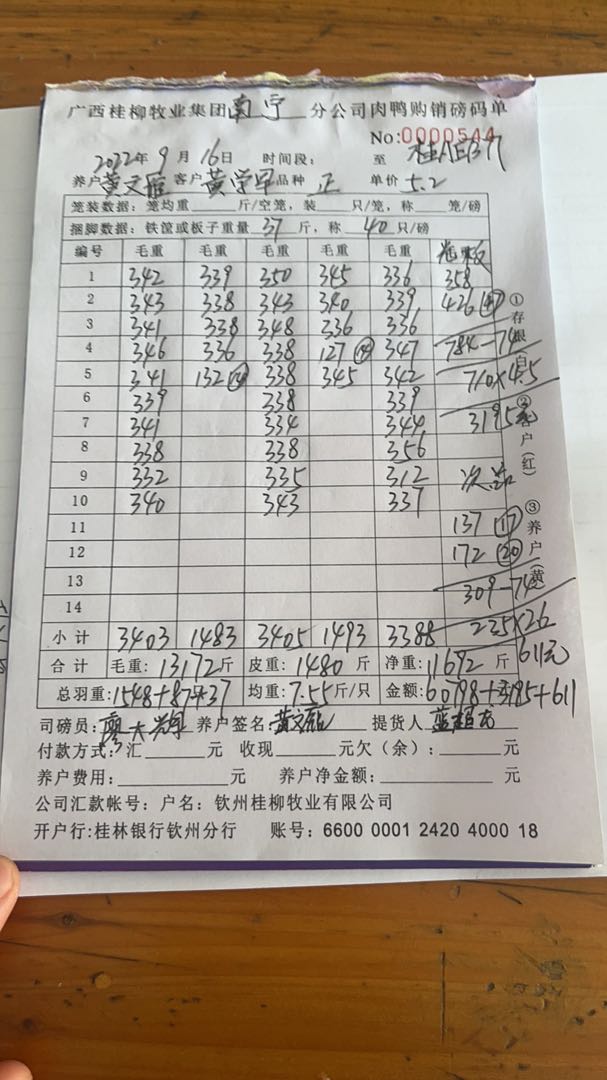 广西桂柳牧业集团南宁分公司肉鸭购销磅码单
No:0000544
2022年9月16日 时间段: 至
养户黄文 客户黄学军品种 正 单价 5.2
笼装数据:笼均重 斤/空笼,装 只/笼,称 笼/磅
捆脚数据:铁筐或板子重量 37 斤,称 40 只/磅
编号 毛重 毛重 毛重 毛重 毛重
1 342 339 350 345 336 358
2 343 338 343 340 339 426
3 341 338 348 336 336
4 346 336 338 127 (14) 347 784-74
5 341 132 338 345 342 710×4.5
6 339 338 339
7 341 334 344 3195元
8 338 338 356
9 332 335 312 次品
10 340 343 337
11 137 (17)
12 172 (20)
13 309-74
14
小计 3403 1483 3405 1493 3388 235×2.6
合计 毛重:13172斤 皮重:1480斤 净重:11692斤 611元
总羽重:1548+87+37 均重:7.55斤/只 金额:60798+3195+611
司磅员: 养户签名:黄文 提货人:蓝
付款方式:汇 元 收现 元欠(余): 元
养户费用: 元 养户净金额: 元
公司汇款帐号:户名:钦州桂柳牧业有限公司
开户行:桂林银行钦州分行 账号:6600 0001 2420 4000 18
①存根(白)②客户(红)③养户(黄)